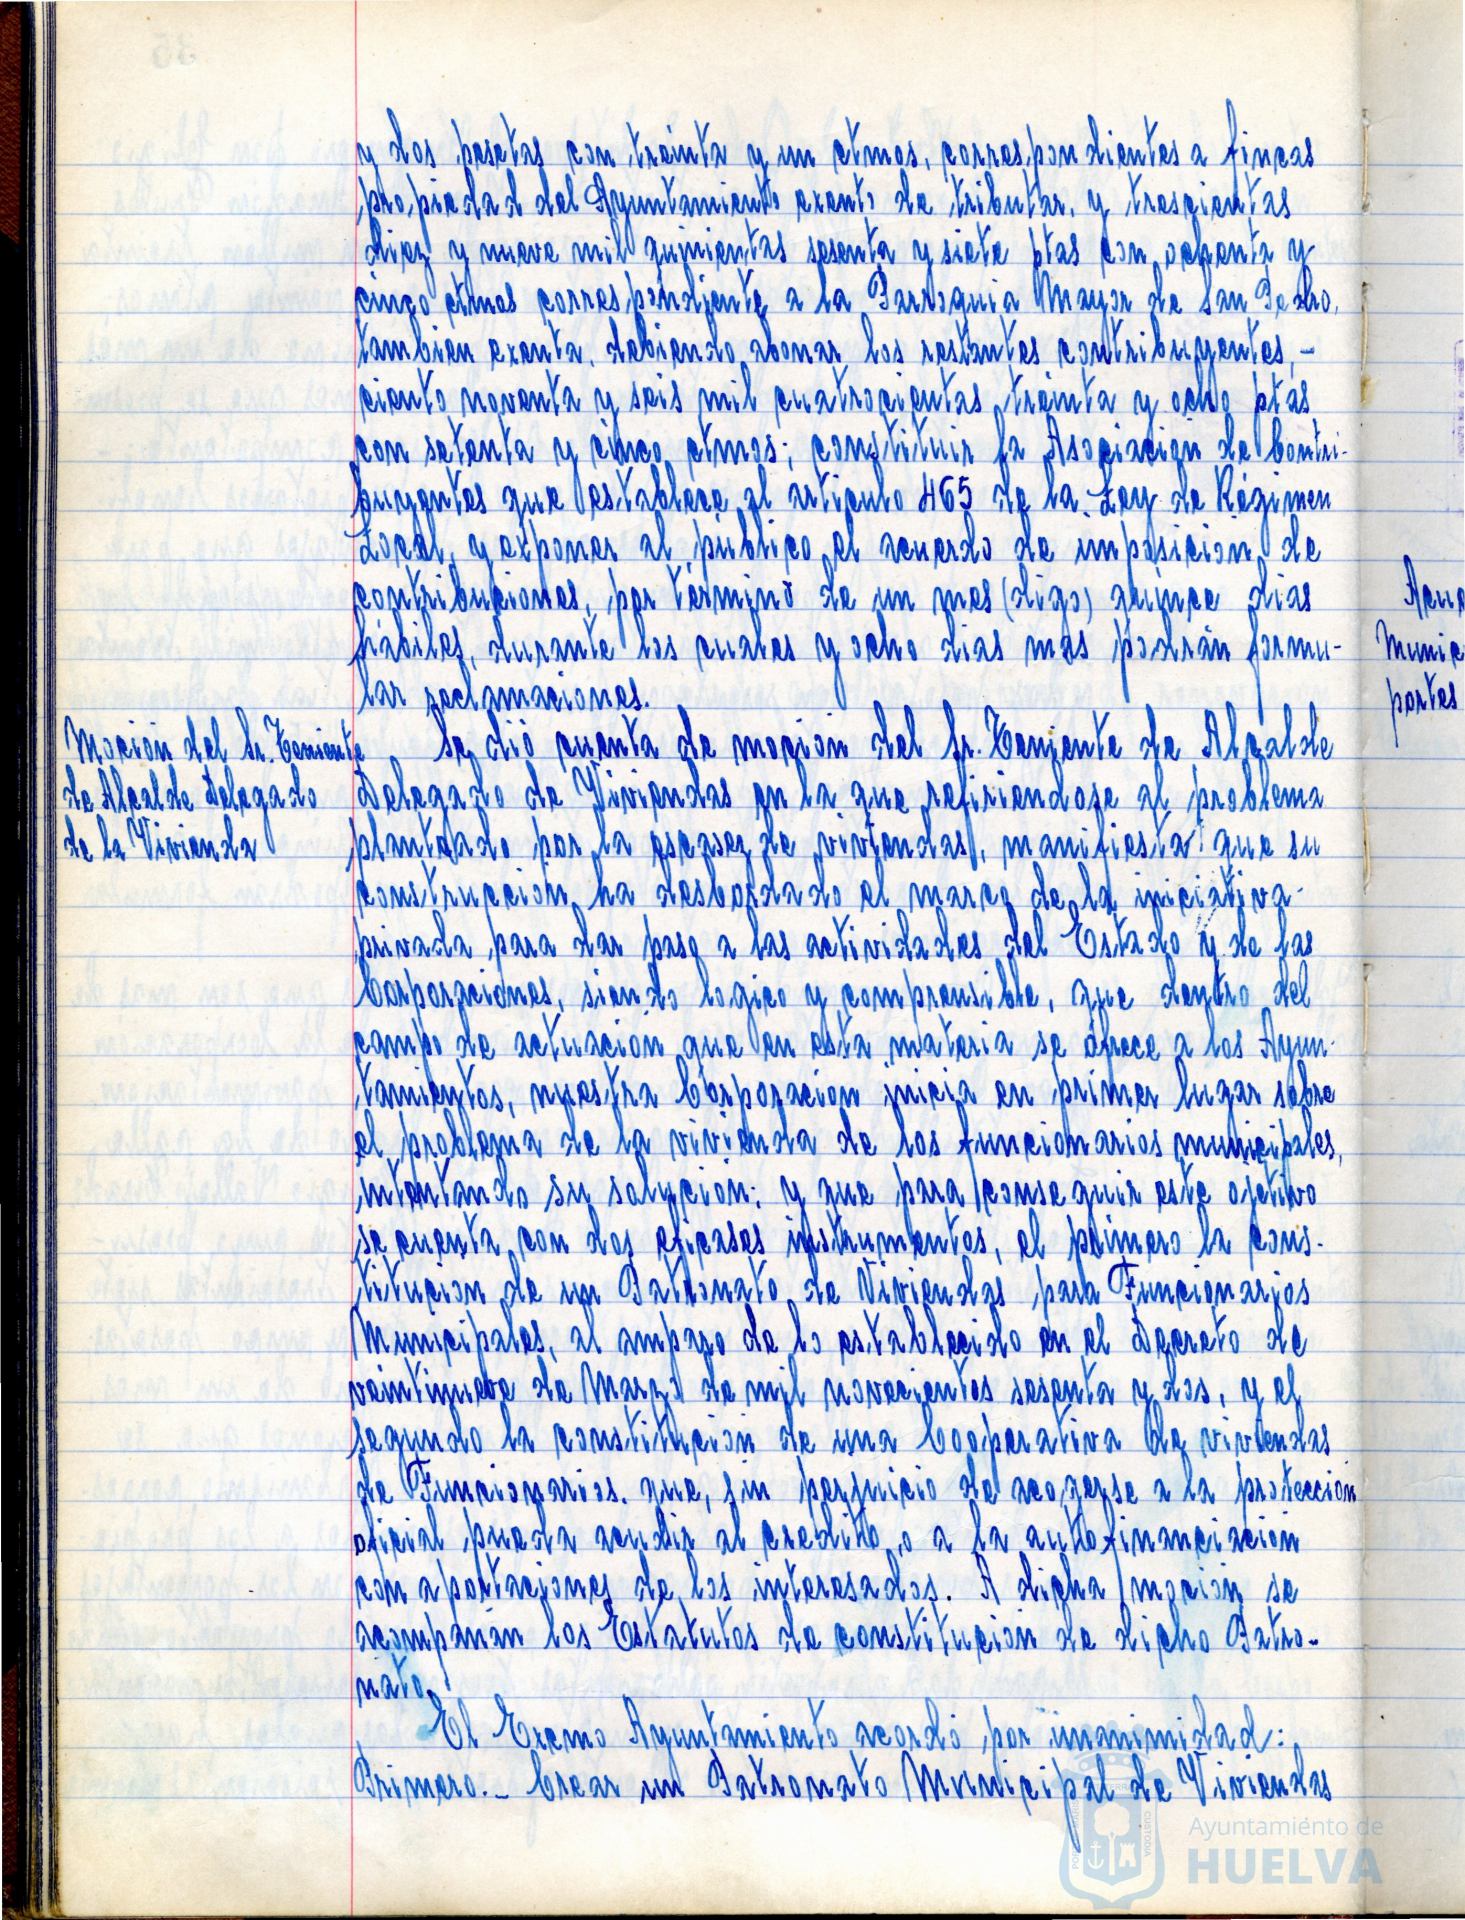 y dos pesetas con treinta y un ctmos, correspondientes a fincas
propiedad del Ayuntamiento exento de tributar, y trescientas
diez y nueve mil quinientas sesenta y siete ptas con ochenta y
cinco ctmos correspondiente a la Parroquia Mayor de San Pedro,
tambien exenta, debiendo abonar los restantes contribuyentes, -
ciento noventa y seis mil cuatrocientas treinta y ocho ptas
con setenta y cinco ctmos; constituir la Asociación de Contri-
buyentes que establece el articulo 465 de la Ley de Régimen
Local, y exponer al público el acuerdo de imposición de
contribuciones, por término de un mes (digo) quince dias
hábiles, durante los cuales y ocho dias mas podrán formu-
lar reclamaciones.
Moción del Sr. Teniente
de Alcalde Delegado
de la Vivienda
Se dió cuenta de moción del Sr. Teniente de Alcalde
Delegado de Viviendas en la que refiriendose al problema
planteado por la escasez de viviendas, manifiesta que su
construcción ha desbordado el marco de la iniciativa-
privada para dar paso a las actividades del Estado y de las
Corporaciones, siendo logico y comprensible, que dentro del
campo de actuación que en esta materia se ofrece a los Ayun-
tamientos, nuestra Corporación inicia en primer lugar sobre
el problema de la vivienda de los funcionarios municipales,
intentando su solución; y que para conseguir este ojetivo
se cuenta con dos eficases instrumentos, el primero la cons-
titucion de un Patronato de Viviendas para Funcionarios
Municipales, al amparo de lo establecido en el Decreto de
veintinueve de Marzo de mil novecientos sesenta y dos, y el
segundo la constitucion de una Cooperativa de viviendas
de Funcionarios. que, sin perjuicio de acogerse a la protección
oficial, pueda acudir al credito, o a la autofinanciación
con aportaciones de los interesados. A dicha moción se
acompañan los Estatutos de constitución de dicho Patro-
nato.
El Excmo Ayuntamiento acordó por unanimidad:
Primero.- Crear un Patronato Municipal de Viviendas
Munic
portes
Ayuntamiento de
HUELVA